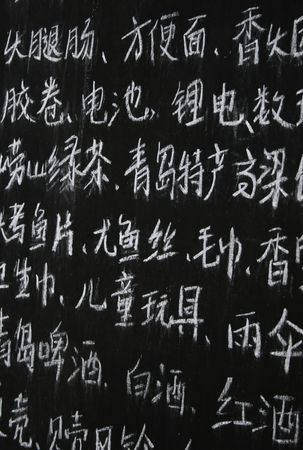 火腿肠、方便面、香
胶卷、电池、锂电、数
崂山绿茶、青岛特产高粱
烤鱼片、尤鱼丝、毛巾、香
卫生巾、儿童玩具、雨伞
青岛啤酒、白酒、红酒
贝壳、贝壳风铃